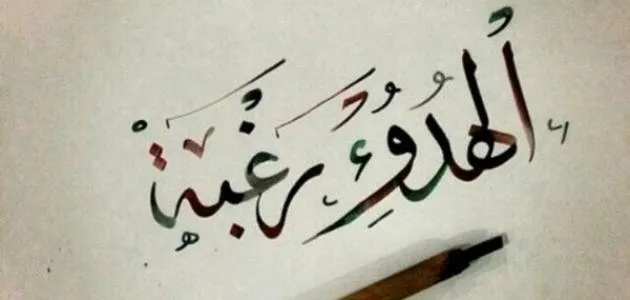 الهُدُوُءِ رَغْبَة